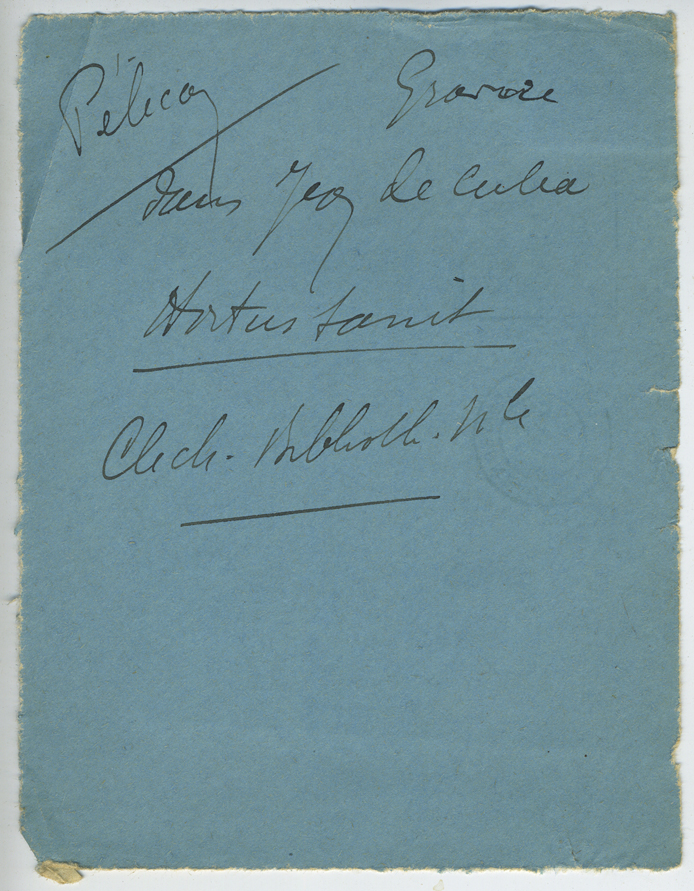 Pélican Gravure
dans Jean de Cuba
Hortus Sanit
Clich. Biblioth. Nle